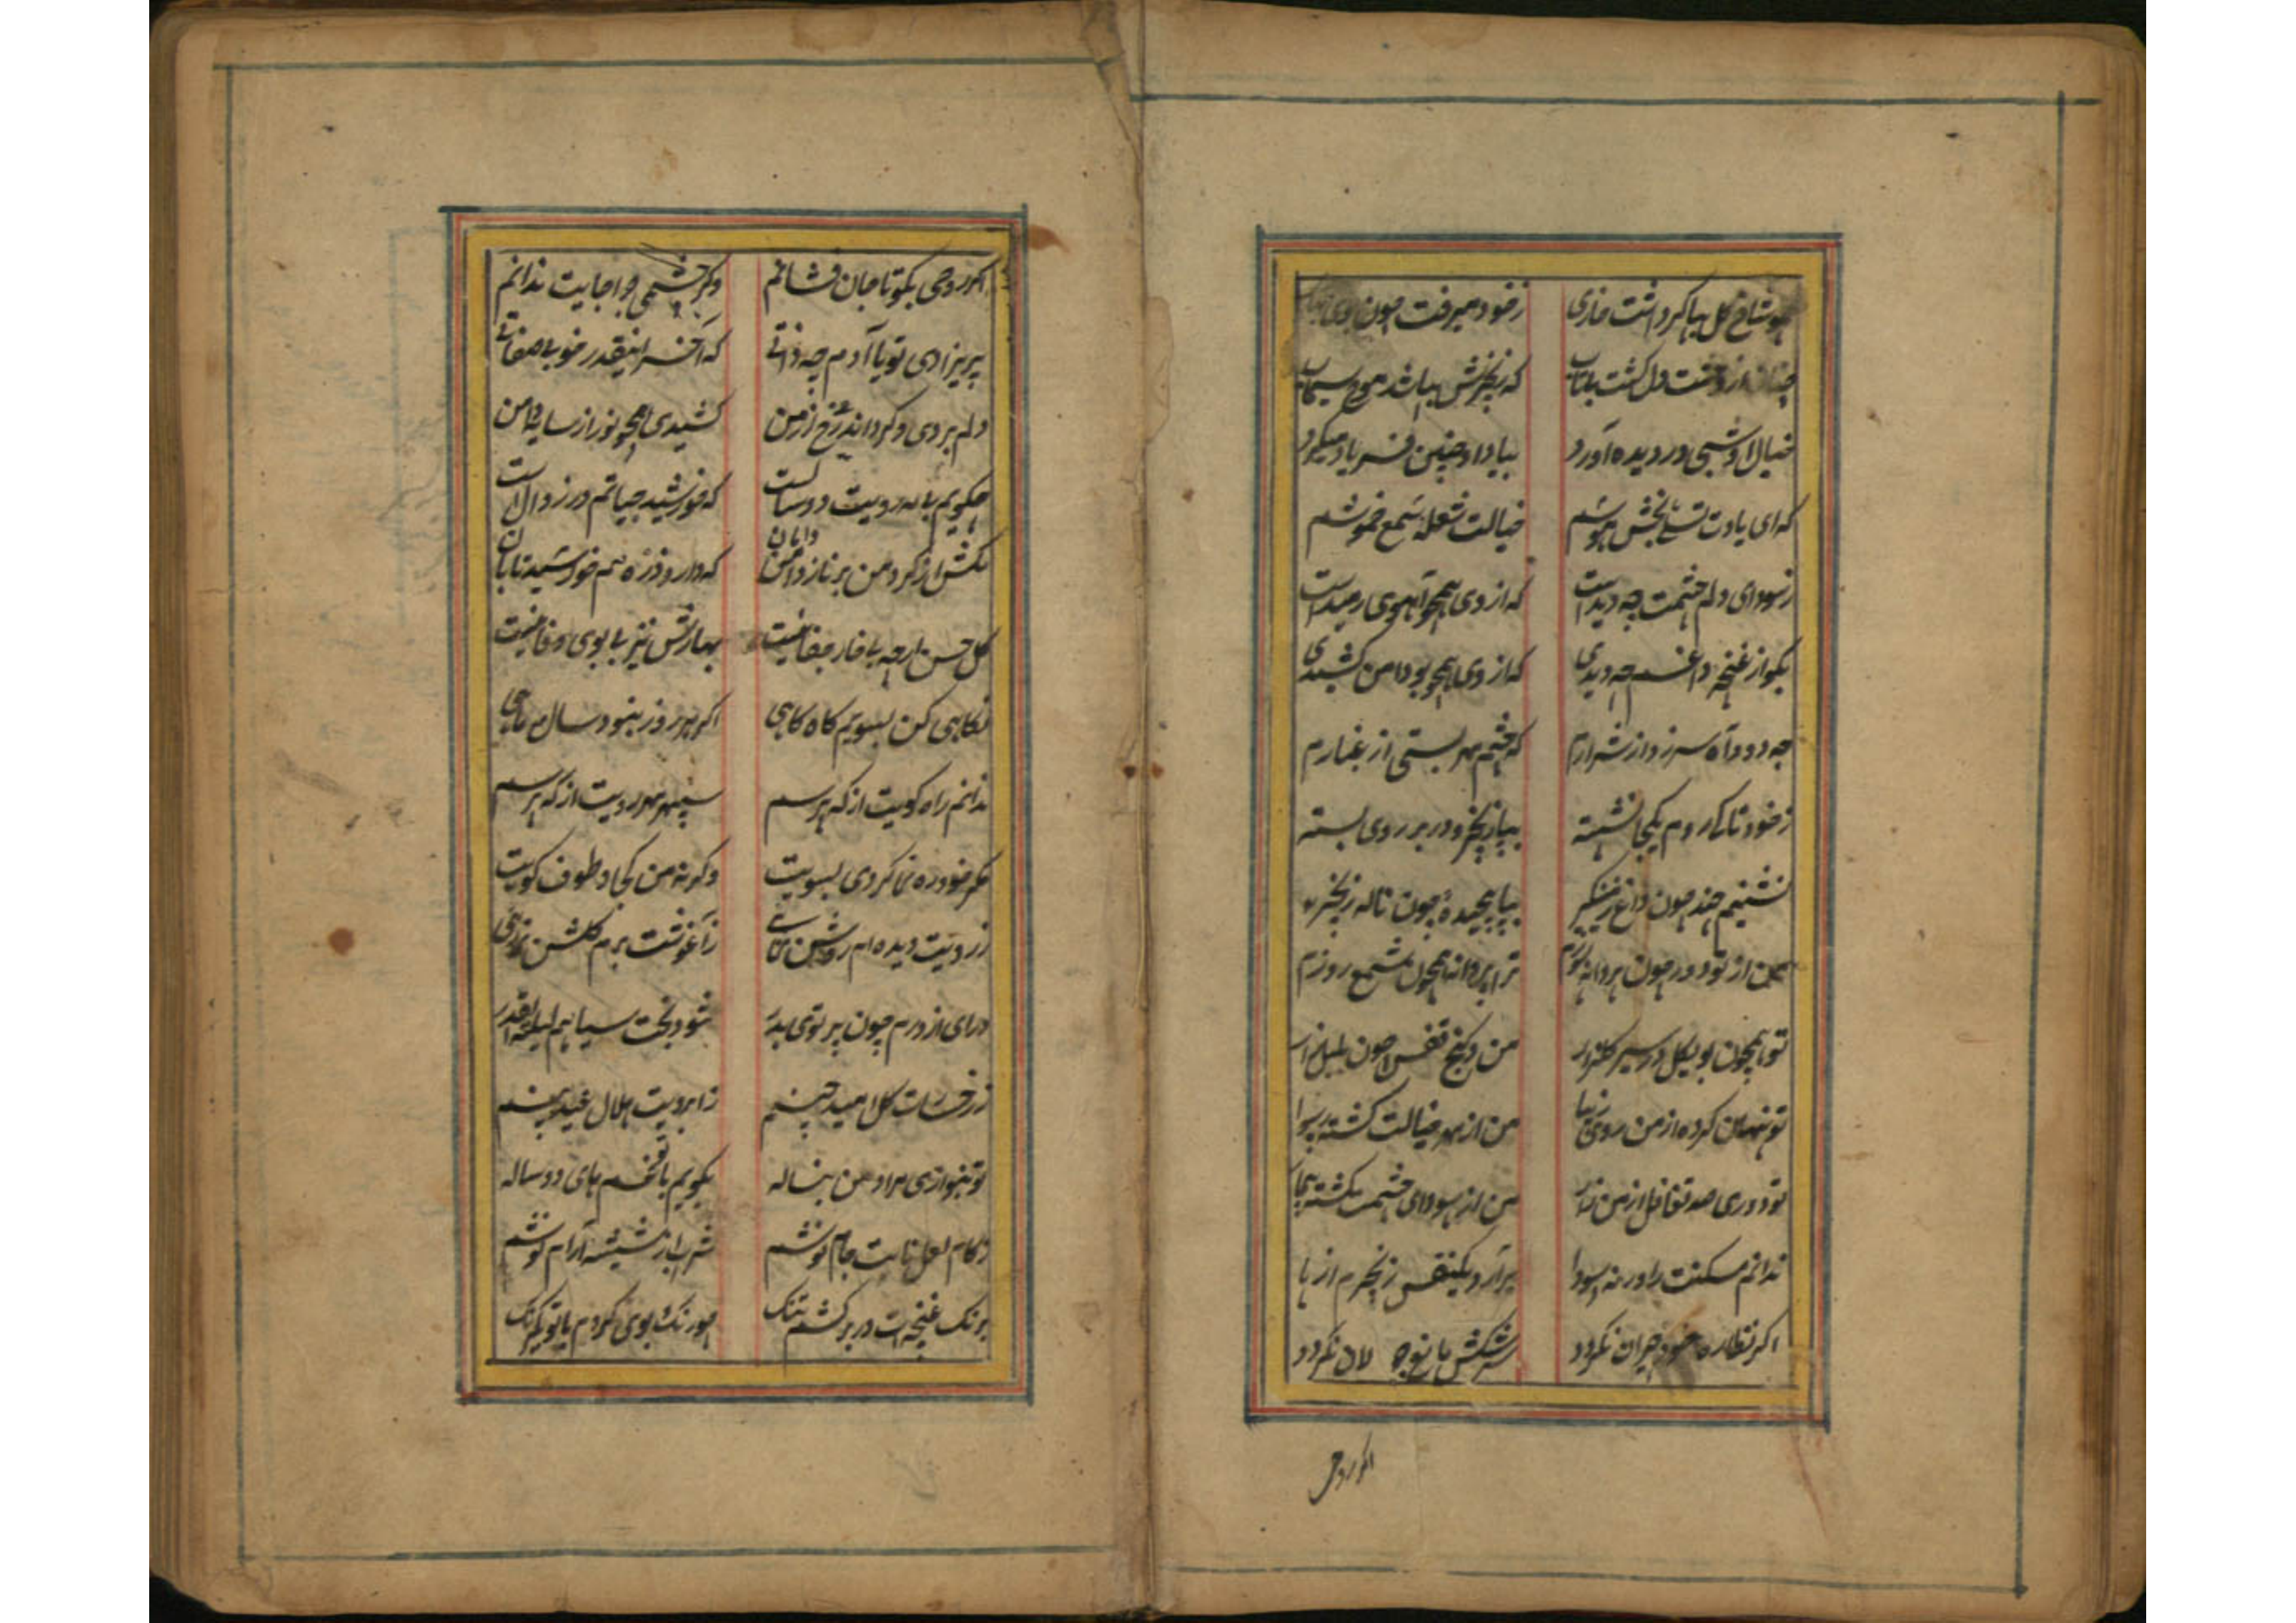 چو شاخ گل بپا کرد اشت خاری زخود میرفت چون
چنان از وحشت دل گشت بیتاب که زنجیرش بپا شد موج سیماب
خیال او شبی در دیده آورد بیاد او چنین فریاد میکرد
که ای یادت تسلی بخش هوشم خیالت شعلهٔ شمع خموشم
ز سودای دلم چشمت چه دیداست که از وی همچو آهوی رمیداست
بکو از غنچهٔ داغم چه دیدی که از وی همچو بو دامن کشیدی
چه دود آه سرزد از شرارم که چشم مهر بستی از غبارم
ز خود تا کی روم یکجا نشسته بپا زنجیر و در بر روی بسته
نشینم چند چون داغ زمینگیر بپا پیچیده چون ناله زنجیر
من از تو دور چون پروانه سوزم ترا پروا نه همچون شمع روزم
تو همچون بوی گل در سیر گلزار من و کنج قفس چون بلبل زار
تو پنهان کرده از من روی زیبا من از مهر خیالت گشته رسوا
تو دوری صد تغافل از من زار من از سودای چشمت گشته بیمار
ندانم مسکنت را ور نه سودا برآرد یکنفس زنجیرم از پا
اکر نظاره خود حیران نکردد سرشکش باغ و لان نکردد
اکر روحی
اکر روحی بکو تا جان فشانم وکر چشمی چرا جایت ندانم
پریزادی تو یا آدم چه ذاتی که آخر اینقدر خوبی صفاتی
دلم بردی و کرداندی رخ از من کشیدی همچو نور از سایه دامن
چکویم بی مه رویت دو سالست که خورشید حیاتم در زوال است
مکش از کرد من بر ناز دامن دامان که دارد ذره هم خورشید تابان
گل حسن ارچه با خار جفا نیست بهارش نیز بی بوی وفا نیست
نکاهی کن بسویم کاه کاهی اکر هر روز نبود سال و ماهی
ندانم راه کویت از که پرسم سپهر مهر رویت از که پرسم
مکر خود ره نما کردی بسویت وکرنه من کجا و طوف کویت
ز رویت دیده ام روشن نمائی ز آغوشت برم گلشن نمائی
درای از درم چون پرتوی بدر شود بخت سیاهم لیلة القدر
ز رخسارت گل امید چینم ز ابرویت هلال عید بینم
تو بنوازی مرا و من بناله بکویم با تو غمهای دو ساله
ز کام لعل نابت جام نوشم شراب از شیشهٔ آرام نوشم
برنک غنچه ات در بر کشم تنک چو رنک و بوی کردم با تو یکرنک